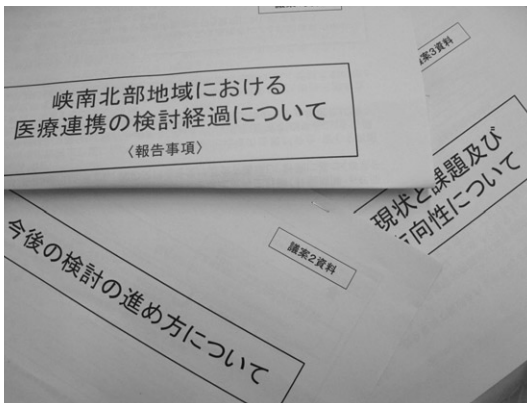 峡南北部地域における
医療連携の検討経過について
〈報告事項〉
議案3資料
現状と課題及び
方向性について
議案2資料
今後の検討の進め方について